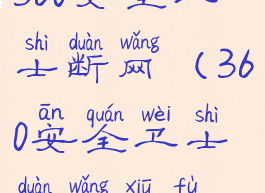 shì duàn wǎng
士断网（36
ān quán wèi shì
0安全卫士
duàn wǎng xiū fù